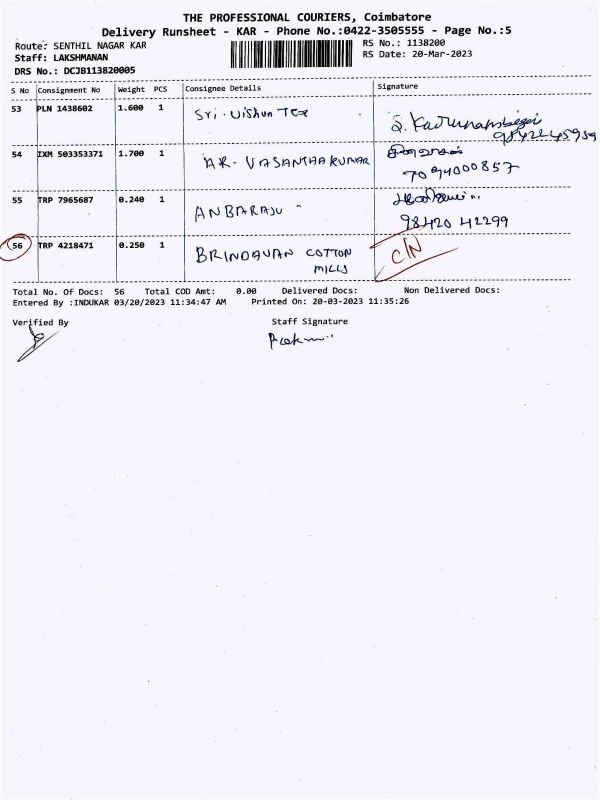 THE PROFESSIONAL COURIERS, Coimbatore
Delivery Runsheet - KAR - Phone No.:0422-3505555 - Page No.:5
Route: SENTHIL NAGAR KAR
RS No.: 1138200
Staff: LAKSHMANAN
RS Date: 20-Mar-2023
DRS No.: DCJB113820005
S No Consignment No Weight PCS Consignee Details Signature
53 PLN 1438602 1.600 1 Sri. Vishnu Tex
54 IXM 503353371 1.700 1 AR. VASANTHAKUMAR
7094000857
55 TRP 7965687 0.240 1 ANBARAJU
98420 42299
56 TRP 4218471 0.250 1 BRINDAVAN COTTON C/N
MILLS
Total No. Of Docs: 56 Total COD Amt: 0.00 Delivered Docs: Non Delivered Docs:
Entered By :INDUKAR 03/20/2023 11:34:47 AM Printed On: 20-03-2023 11:35:26
Verified By Staff Signature